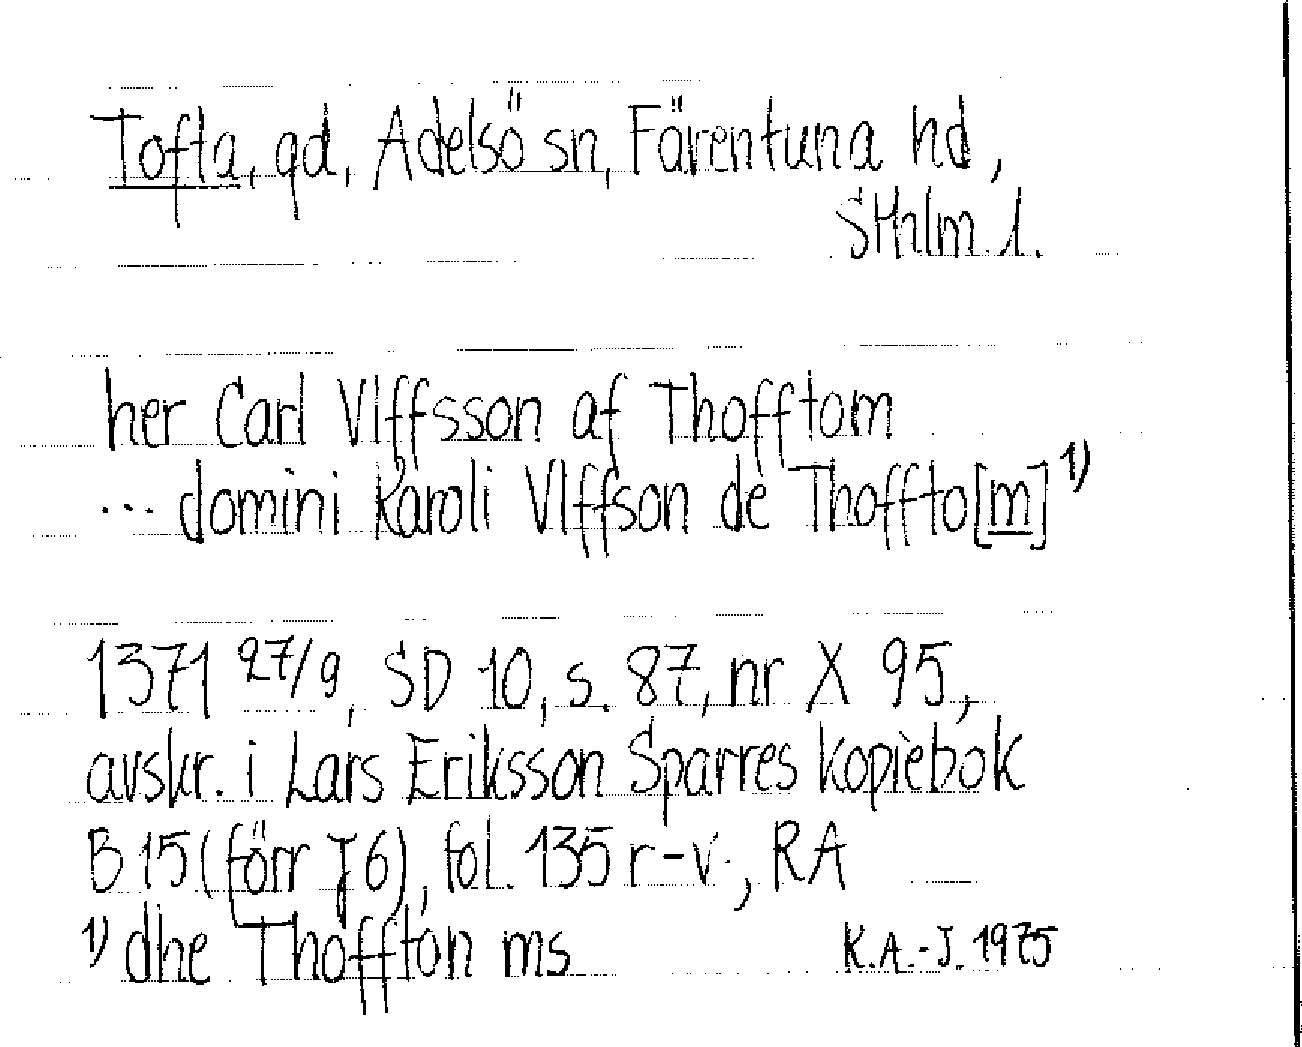 Tofta, gd, Adelsö sn, Färentuna hd,
Sthlm l.
her Carl Vlffsson af Thofftom
... domini Karoli Vlffson de Thoffto[m] 1)
1371 27/9, SD 10, s. 87, nr X 95,
avskr. i Lars Eriksson Sparres kopiebok
B 15 (förr J 6), fol. 135 r-v., RA
1) dhe Thoffton ms
K.A.-J. 1975